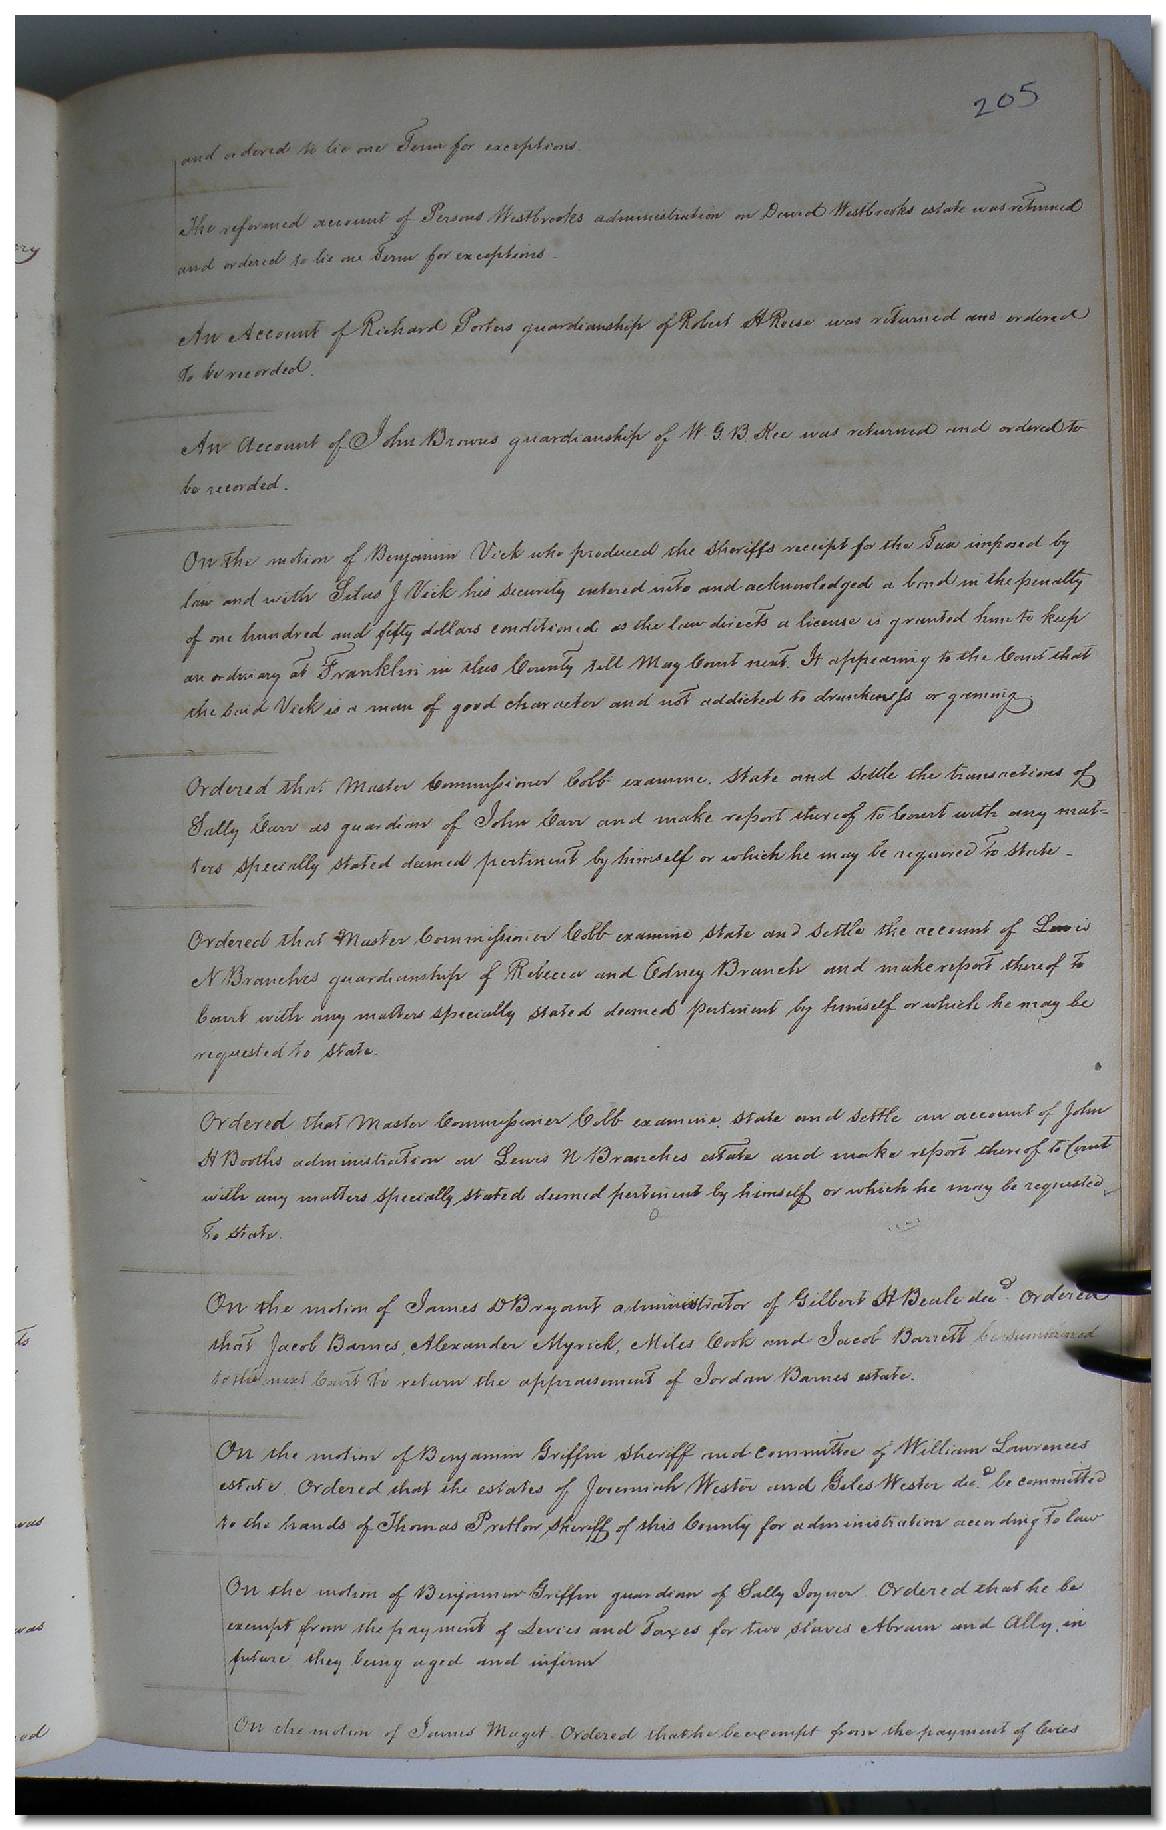 205
and ordered to lie one Term for exceptions.
The reformed account of Persons Westbrooks administration on David Westbrooks estate was returned
and ordered to lie one Term for exceptions.
An Account of Richard Porters guardianship of Robert H Reese was returned and ordered
to be recorded.
An Account of John Browns guardianship of W. G. B. Kee was returned and ordered to
be recorded.
On the motion of Benjamin Vick who produced the sheriffs receipt for the Tax imposed by
law and with Silas J Vick his security entered into and acknowledged a bond in the penalty
of one hundred and fifty dollars conditioned as the law directs a license is granted him to keep
an ordinary at Franklin in this County till May Court next. It appearing to the Court that
the said Vick is a man of good character and not addicted to drunkenness or gaming
Ordered that Master Commissioner Cobb examine, state and settle the transactions of
Sally Carr as guardian of John Carr and make report thereof to Court with any mat-
ters specially stated deemed pertinent by himself or which he may be required to state -
Ordered that Master Commissioner Cobb examine state and settle the account of Lewis
N Branches guardianship of Rebecca and Edney Branch and make report thereof to
Court with any matters specially stated deemed pertinent by himself or which he may be
requested to state.
Ordered that Master Commissioner Cobb examine, state and settle an account of John
H Booths administration on Lewis N Branches estate and make report thereof to Court
with any matters specially stated deemed pertinent by himself or which he may be requested
to state.
On the motion of James D Bryant administrator of Gilbert H Beale decd. Ordered
that Jacob Barnes, Alexander Myrick, Miles Cook and Jacob Barrett be summoned
to the next Court to return the appraisement of Jordan Barnes estate.
On the motion of Benjamin Griffin sheriff and committee of William Lawrences
estate. Ordered that the estates of Jeremiah Wester and Giles Wester decd. be committed
to the hands of Thomas Pretlow Sheriff of this County for administration according to law
On the motion of Benjamin Griffin guardian of Sally Joyner. Ordered that he be
exempt from the payment of Levies and Taxes for two slaves Abram and Ally, in
future they being aged and infirm
On the motion of James Maget. Ordered that he be exempt from the payment of levies